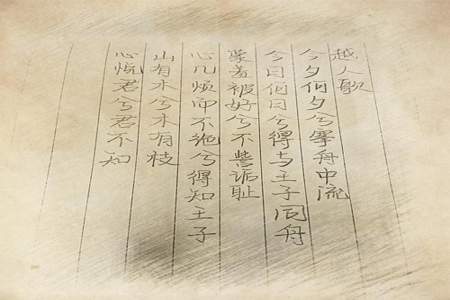 越人歌
今夕何夕兮搴舟中流
今日何日兮得与王子同舟
蒙羞被好兮不訾诟耻
心几烦而不绝兮得知王子
山有木兮木有枝
心悦君兮君不知